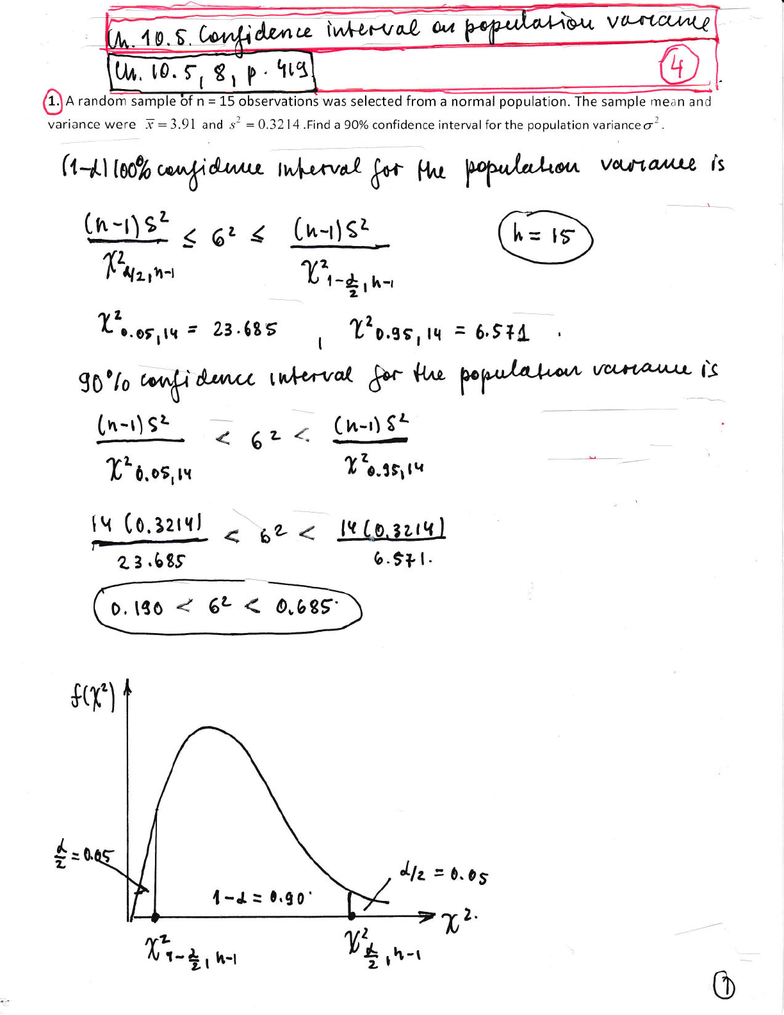 Ch. 10.5. Confidence interval on population variance
Ch. 10.5, 8, p. 419
4
1. A random sample of n = 15 observations was selected from a normal population. The sample mean and
variance were x̄ = 3.91 and s² = 0.3214 .Find a 90% confidence interval for the population variance σ².
(1-α)100% confidence interval for the population variance is
(n-1)S² / χ²α/2, n-1 ≤ σ² ≤ (n-1)S² / χ²1-α/2, n-1
n = 15
χ²0.05, 14 = 23.685 , χ²0.95, 14 = 6.571 .
90% confidence interval for the population variance is
(n-1)S² / χ²0.05, 14 < σ² < (n-1)S² / χ²0.95, 14
14 (0.3214) / 23.685 < σ² < 14 (0.3214) / 6.571.
0.190 < σ² < 0.685.
f(χ²)
α/2 = 0.05
α/2 = 0.05
1-α = 0.90
χ².
χ²1-α/2, n-1
χ²α/2, n-1
1